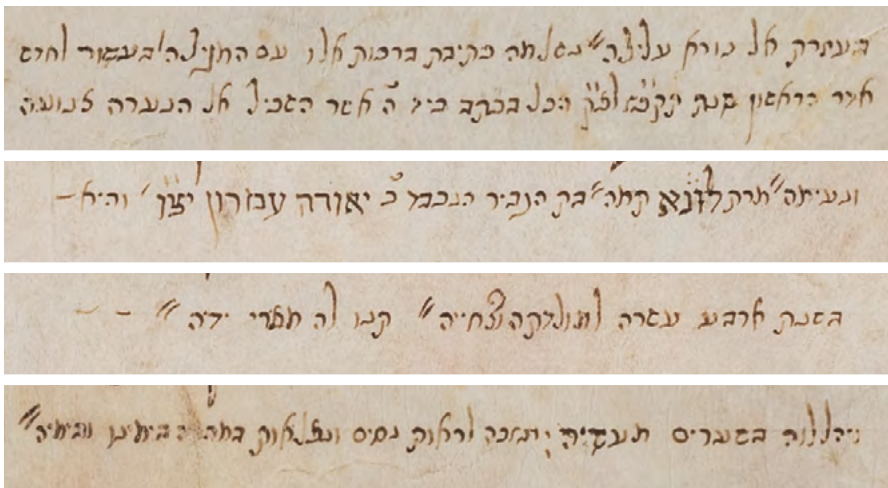 בעזרת אל בורא עלילה נשלמה כתיבת ברכות אלו עם התפילה בעשור לחדש
אדר הראשון שנת תק״מ לפ״ק הכל בכתב ביד אשר השכיל אל הנערה צנועה
ונעימה מרת לונא קמה בת הגביר הנכבד כ יאודה עמרון יצ״ו והיא
בשנת ארבע עשרה לתולדתה קנו לה מארי ידיה
ויהללוה בשערים מעשיה ותזכה לראות נסים ונפלאות במהרה בימינו ובימיה